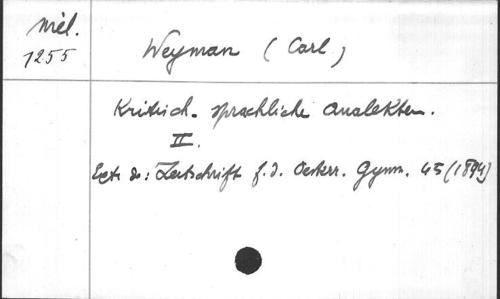 Mél.
1255
Weyman (Carl)
Kritisch-sprachliche Analekten.
II.
Extr. de: Zeitschrift f. d. Oesterr. Gymn. 45 (1894)